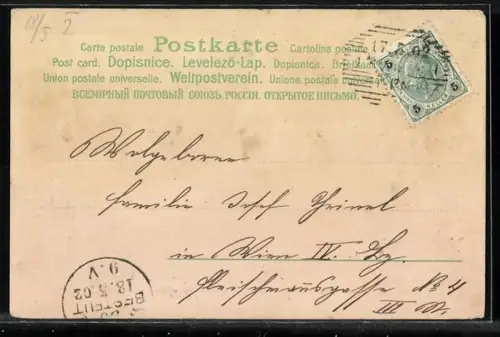 18/5 I
Carte postale Postkarte Cartolina postale
Post card. Dopisnice. Levelező-Lap. Dopisnica.
Union postale universelle. Weltpostverein. Unione postale
ВСЕМІРНЫЙ ПОЧТОВЫЙ СОЮЗЪ. РОССІЯ. ОТКРЫТОЕ ПИСЬМО.
5 5
5 5
Wolgeboren
Familie Josef
in Wien IV. Bz.
Fleischmanngasse No 4
III St.
BESTELLT
18.5.02
9.V